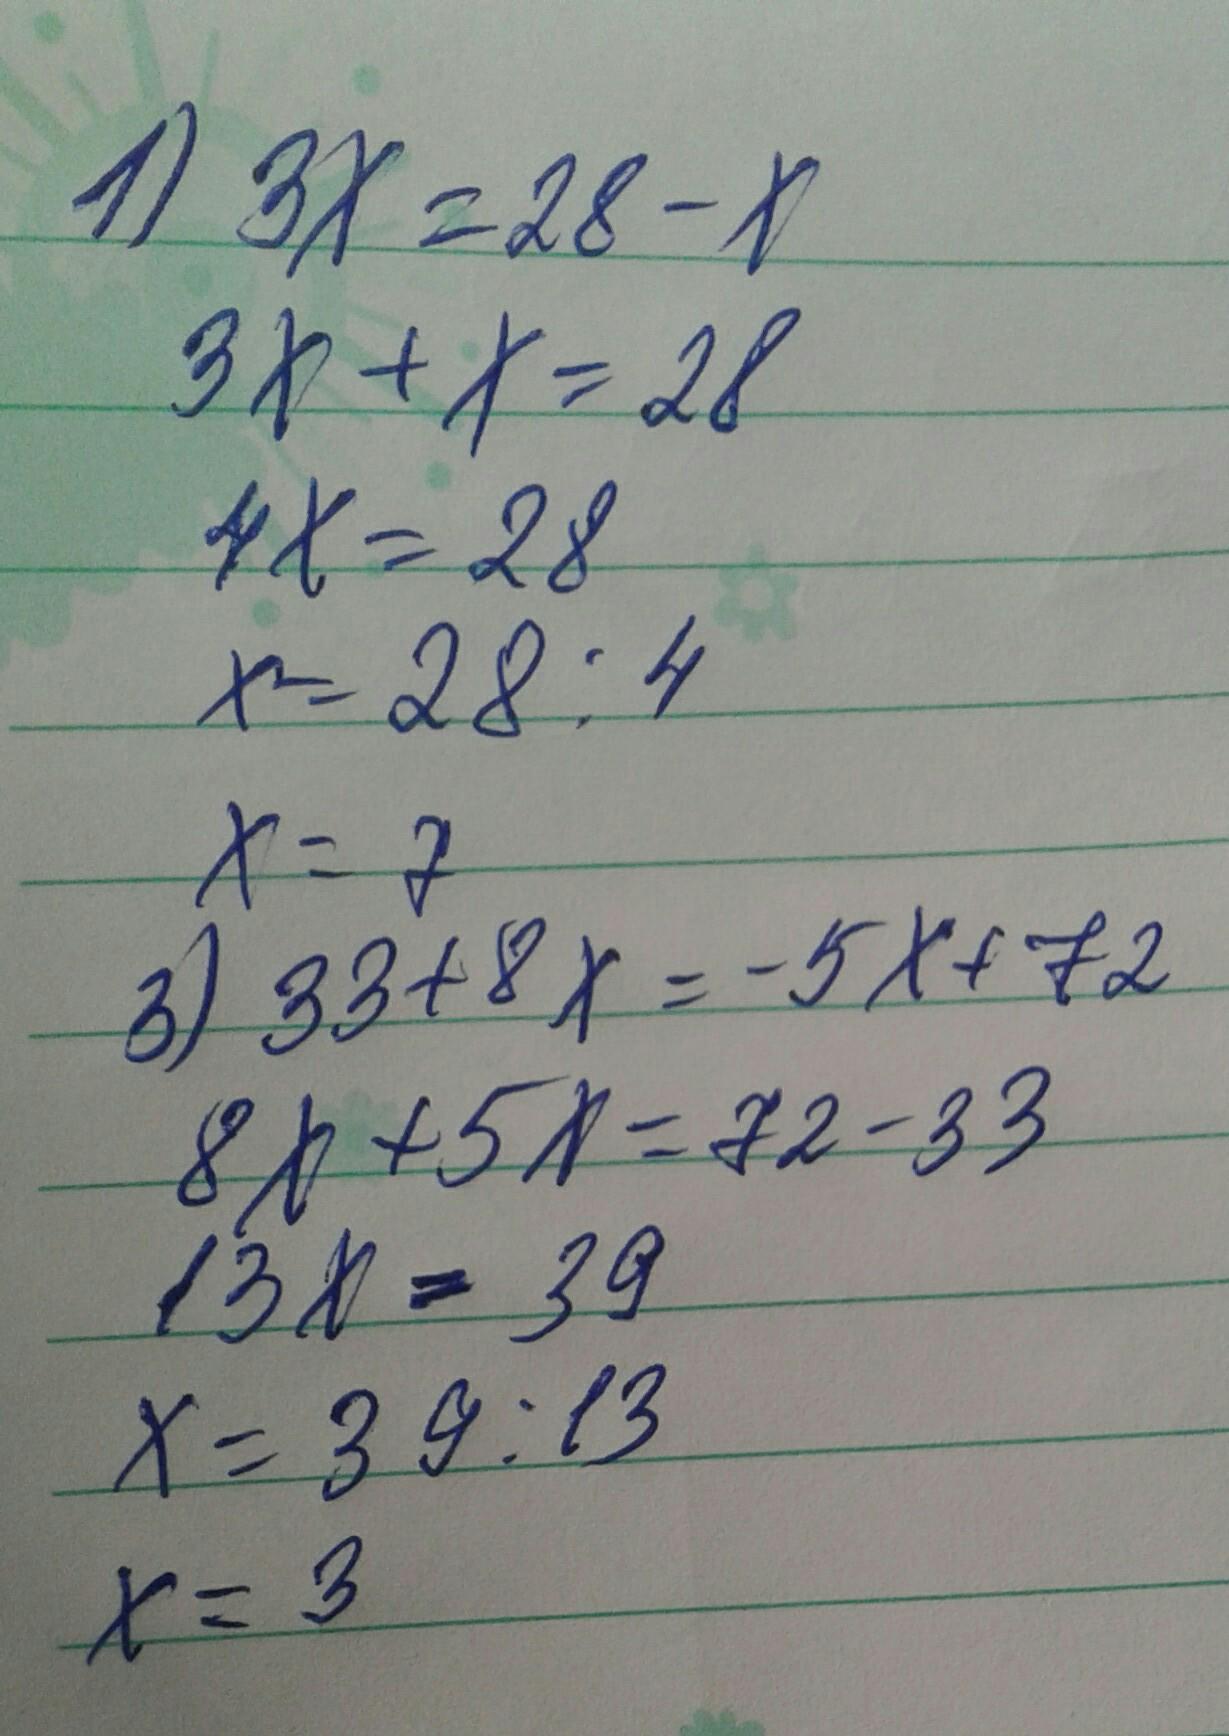 1) 3x = 28 - x
3x + x = 28
4x = 28
x = 28 : 4
x = 7
3) 33 + 8x = -5x + 72
8x + 5x = 72 - 33
13x = 39
x = 39 : 13
x = 3